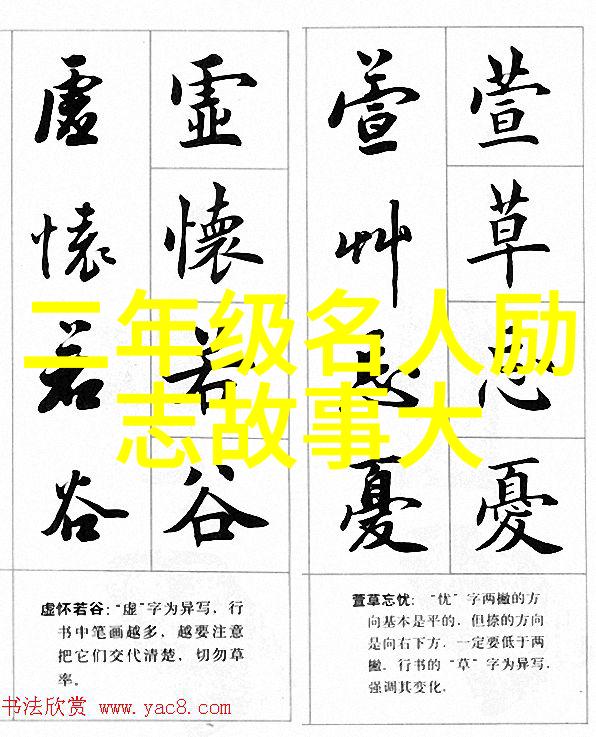 虛懷若谷
虛懷若谷
萱艸忘憂
萱草忘憂
二年级名人励
志故事大
虚怀若谷：“虚”字为异写，行
书中笔画越多，越要注意
把它们交代清楚，切勿草
率。
萱草忘忧：“忧”字两撇的方
向基本是平的，但捺的方向
是向右下方，一定要低于两
撇。行书的“草”字为异写，
强调其变化。
书法欣赏 www.yac8.com